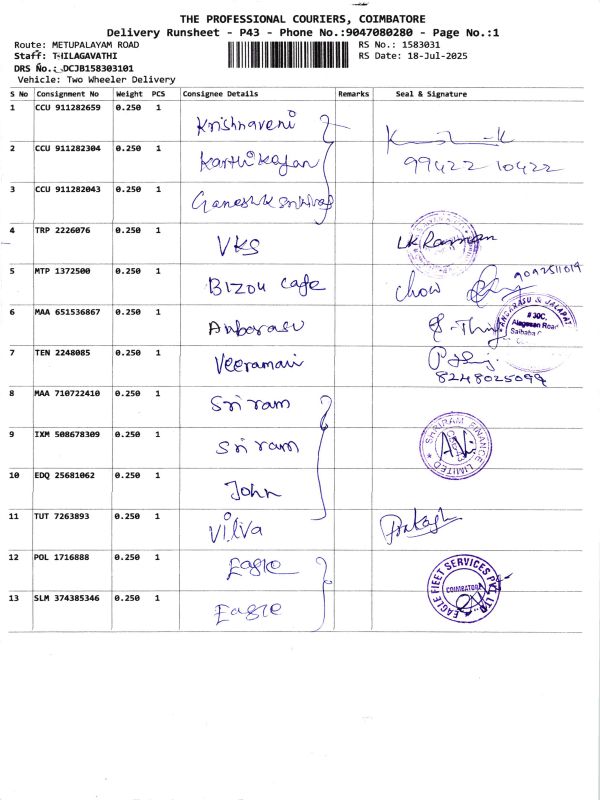 THE PROFESSIONAL COURIERS, COIMBATORE
Delivery Runsheet - P43 - Phone No.:9047080280 - Page No.:1
Route: METUPALAYAM ROAD RS No.: 1583031
Staff: THILAGAVATHI RS Date: 18-Jul-2025
DRS No.: DCJB158303101
Vehicle: Two Wheeler Delivery
S No Consignment No Weight PCS Consignee Details Remarks Seal & Signature
1 CCU 911282659 0.250 1 Krishnaveni
2 CCU 911282304 0.250 1 Karthikayan 99422 10422
3 CCU 911282043 0.250 1 Ganesh K
4 TRP 2226076 0.250 1 VKS
5 MTP 1372500 0.250 1 Bizou cafe Chow 9092511019
6 MAA 651536867 0.250 1 Anbarasu
ANBARASU & JALAPAT
# 30C,
Alagesan Road
Saibaba
7 TEN 2248085 0.250 1 Veeramani
8248025099
8 MAA 710722410 0.250 1 Sri ram
9 IXM 508678309 0.250 1 Sri ram
SHRIRAM FINANCE LIMITED
10 EDQ 25681062 0.250 1 John
11 TUT 7263893 0.250 1 Vilva Prakash
12 POL 1716888 0.250 1 Eagle
13 SLM 374385346 0.250 1 Eagle
EAGLE FLEET SERVICES PVT LTD
COIMBATORE